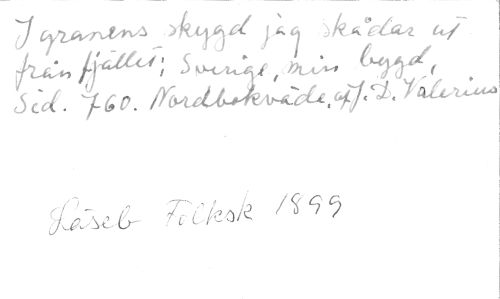 I granens skygd jag skådar ut
från fjället; Sverige, min bygd,
Sid. 760. Nordbokväde, af J. D. Valerius
Läseb Folksk 1899